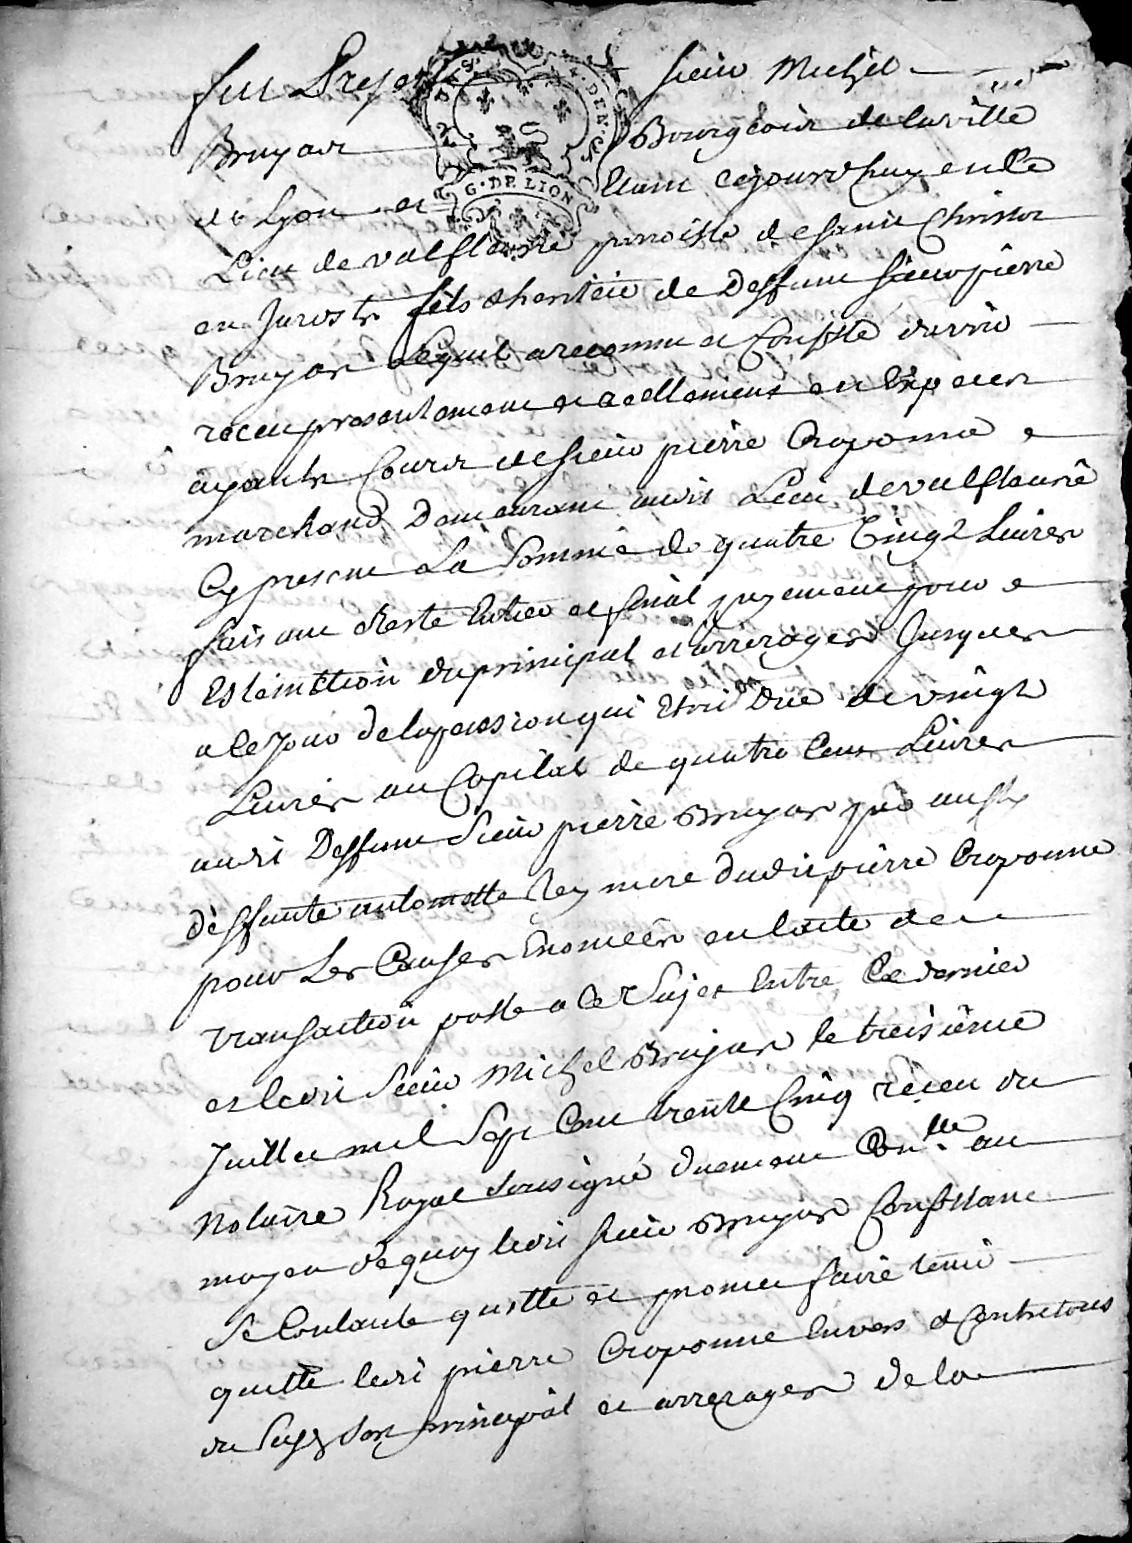 fut Present sieur Michel
Bruyas Bourgeois de la ville
de Lyon et Etant cejourdhuy en ce
Lieu de valfleurie parroisse de saint Christot
en Jarest fils & heritier de Deffunt sieur pierre
Bruyas Lequel a reconnu et Confessé avoir
receu presentement et reellement en Especes
ayants Cours de sieur pierre Croponne
marchand Demeurant audit Lieu de valfleurie
Cy present La somme de quatre Vingt Livres
faisant Reste Entier et final payement pour
Estainction du principal et arrerages Jusques
a ce Jour de la pension qui Etoit Due de vingt
Livres au Capital de quatre Cent Livres
audit Deffunt Sieur pierre Bruyas par
deffunte antoinette Rey mere dudit pierre Croponne
pour Les Causes Enoncées en lacte de
transaction passé a ce Sujet Entre Ce dernier
et ledit Sieur Michel Bruyas le treisième
Juillet mil Sept Cent trente Cinq receu du
Notaire Royal sousigné duement Con.lle au
moyen de quoy ledit sieur Bruyas Confessant
se Contante quitte et promet faire tenir
quitte ledit pierre Croponne Envers & Contre tous
du susd. principal et arrerages de la
G. DE LION